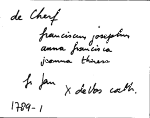 de Cherf
franciscus josephus
anna francisca
joanna theresa
fs Jan X de Vos cath.
1789-1